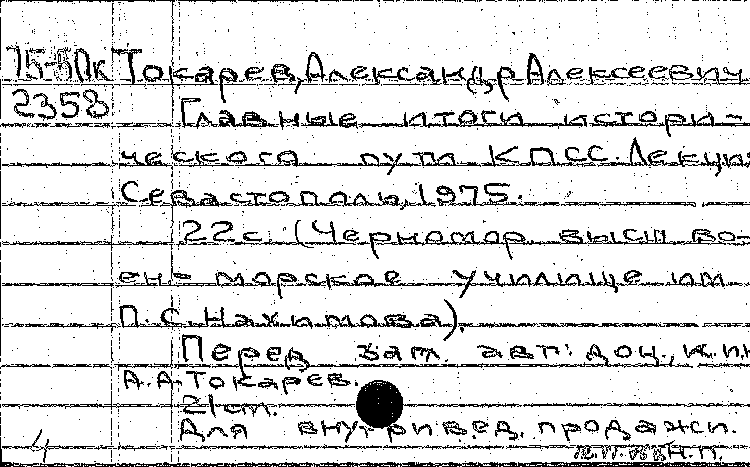 15-5Пк Токарев, Александр Алексеевич
2358 Главные итоги истори-
ческого пути КПСС. Лекция
Севастополь, 1975.
22с. (Черномор. высш во-
ен-морское училище им
П.С. Нахимова).
Перед загл. авт: доц., к.и.н
А.А. Токарев.
21 см.
Для внутривед. продажи.
4 Н.П.